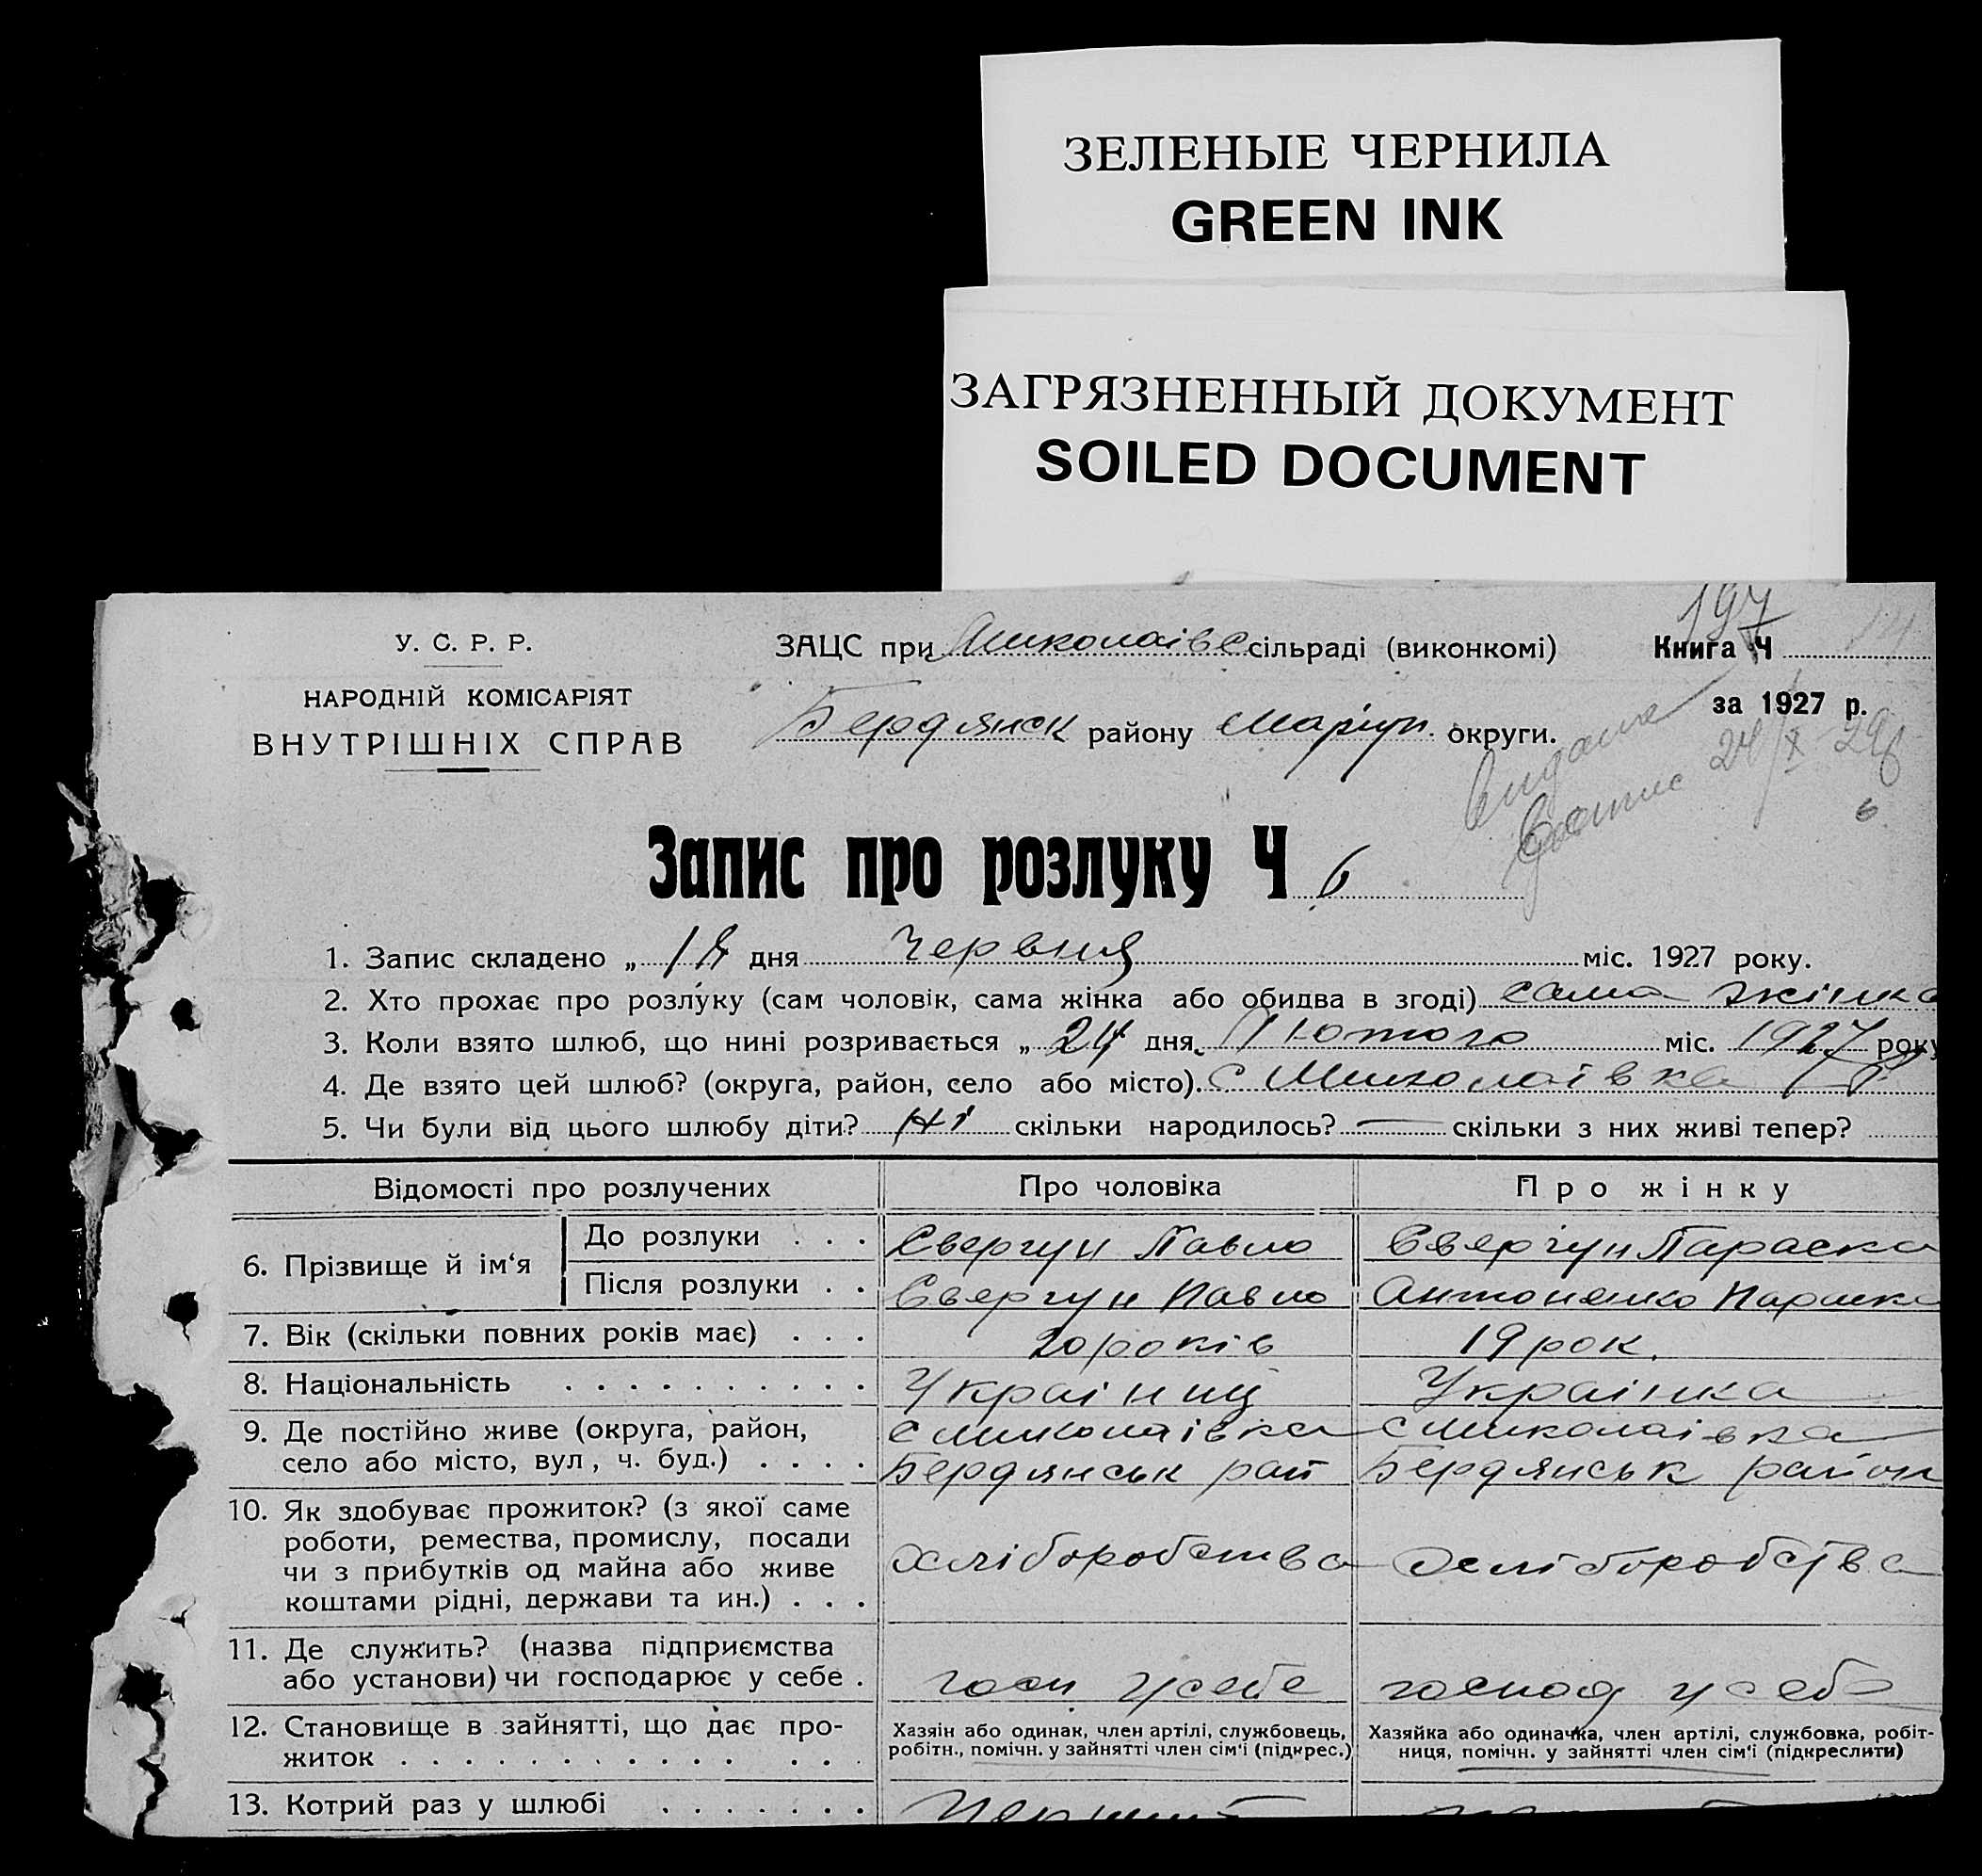 ЗЕЛЕНЫЕ ЧЕРНИЛА
GREEN INK
ЗАГРЯЗНЕННЫЙ ДОКУМЕНТ
SOILED DOCUMENT
197
У. С. Р. Р.
НАРОДНІЙ КОМІСАРІЯТ
ВНУТРІШНІХ СПРАВ
ЗАЦС при Миколаівс сільраді (виконкомі)
Книга Ч 14
Бердянск району Маріуп. округи.
за 1927 р.
видана
24/X 29
Запис про розлуку Ч 6
1. Запис складено „ 18 дня Червня міс. 1927 року.
2. Хто прохає про розлуку (сам чоловік, сама жінка або обидва в згоді) сама жінка
3. Коли взято шлюб, що нині розривається „ 24 дня Лютого міс. 1927 року
4. Де взято цей шлюб? (округа, район, село або місто) с Миколаівка
5. Чи були від цього шлюбу діти? ні скільки народилось? — скільки з них живі тепер?
Відомості про розлучених Про чоловіка Про жінку
6. Прізвище й ім‘я До розлуки . . . Євергун Павло Євергун Параска
Після розлуки . . Євергун Павло Антоненко Параска
7. Вік (скільки повних років має) . . . 20 років 19 рок.
8. Національність . . . . . . . . . . Украіниц Украінка
9. Де постійно живе (округа, район, с Миколаівка с Миколаівка
село або місто, вул, ч. буд.) . . . . Бердянськ рай Бердянськ район
10. Як здобуває прожиток? (з якої саме
роботи, ремества, промислу, посади
чи з прибутків од майна або живе хліборобства хліборобства
коштами рідні, держави та ин.) . . .
11. Де служить? (назва підприємства
або установи) чи господарює у себе . госп. у себе господ у себе
12. Становище в зайнятті, що дає про-
житок . . . . . . . . . . . . .
Хазяін або одинак, член артілі, службовець,
робітн., помічн. у зайнятті член сім‘ї (підкрес.)
Хазяйка або одиначка, член артілі, службовка, робіт-
ниця, помічн. у зайнятті член сім‘ї (підкреслити)
13. Котрий раз у шлюбі . . . . . . . Перший